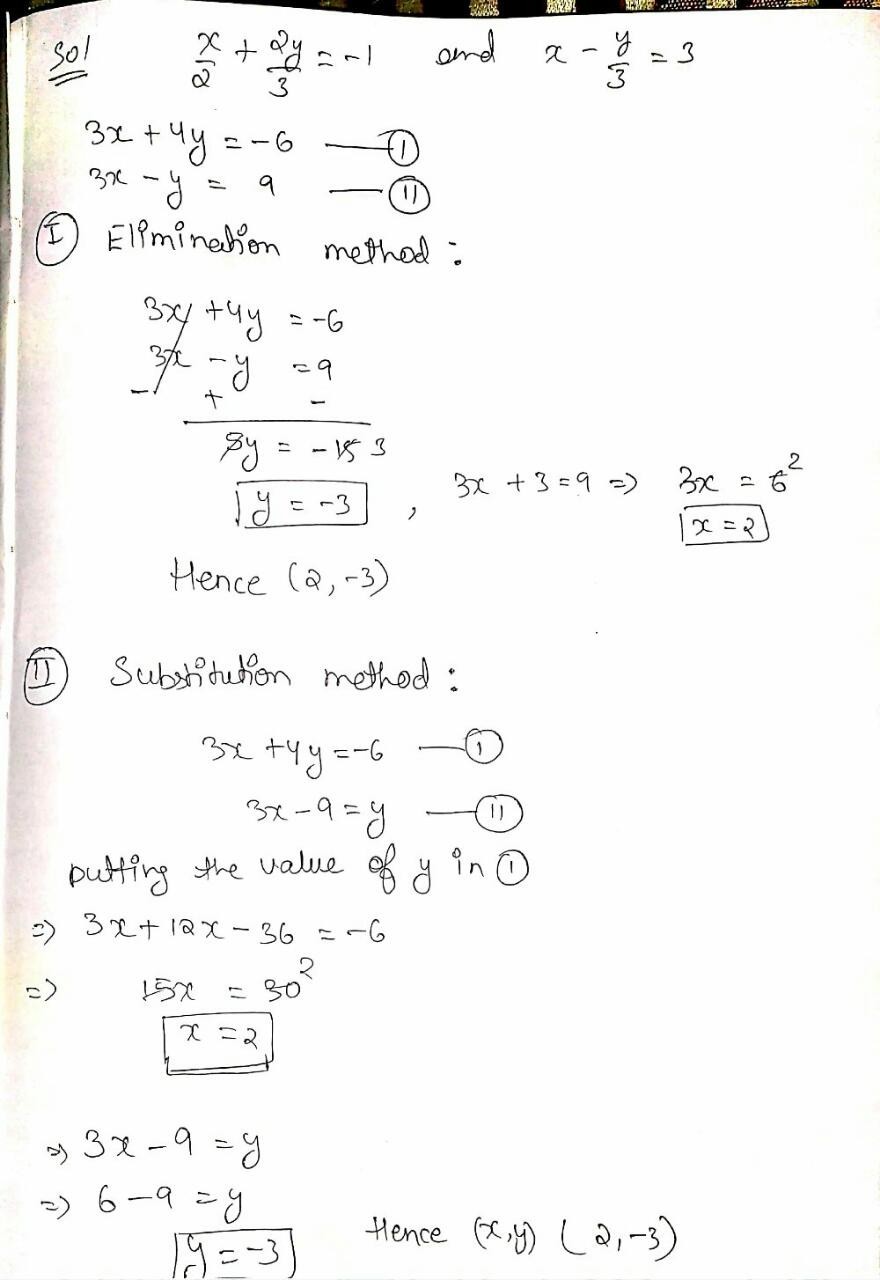 Sol x/2 + 2y/3 = -1 and x - y/3 = 3
3x + 4y = -6 — (I)
3x - y = 9 — (II)
(I) Elimination method :
3x + 4y = -6
3x - y = 9
- + -
5y = -15 3
y = -3 , 3x + 3 = 9 => 3x = 6 2
x = 2
Hence (2, -3)
(II) Substitution method :
3x + 4y = -6 — (I)
3x - 9 = y — (II)
putting the value of y in (I)
=> 3x + 12x - 36 = -6
=> 15x = 30 2
x = 2
=> 3x - 9 = y
=> 6 - 9 = y
y = -3 Hence (x,y) (2, -3)